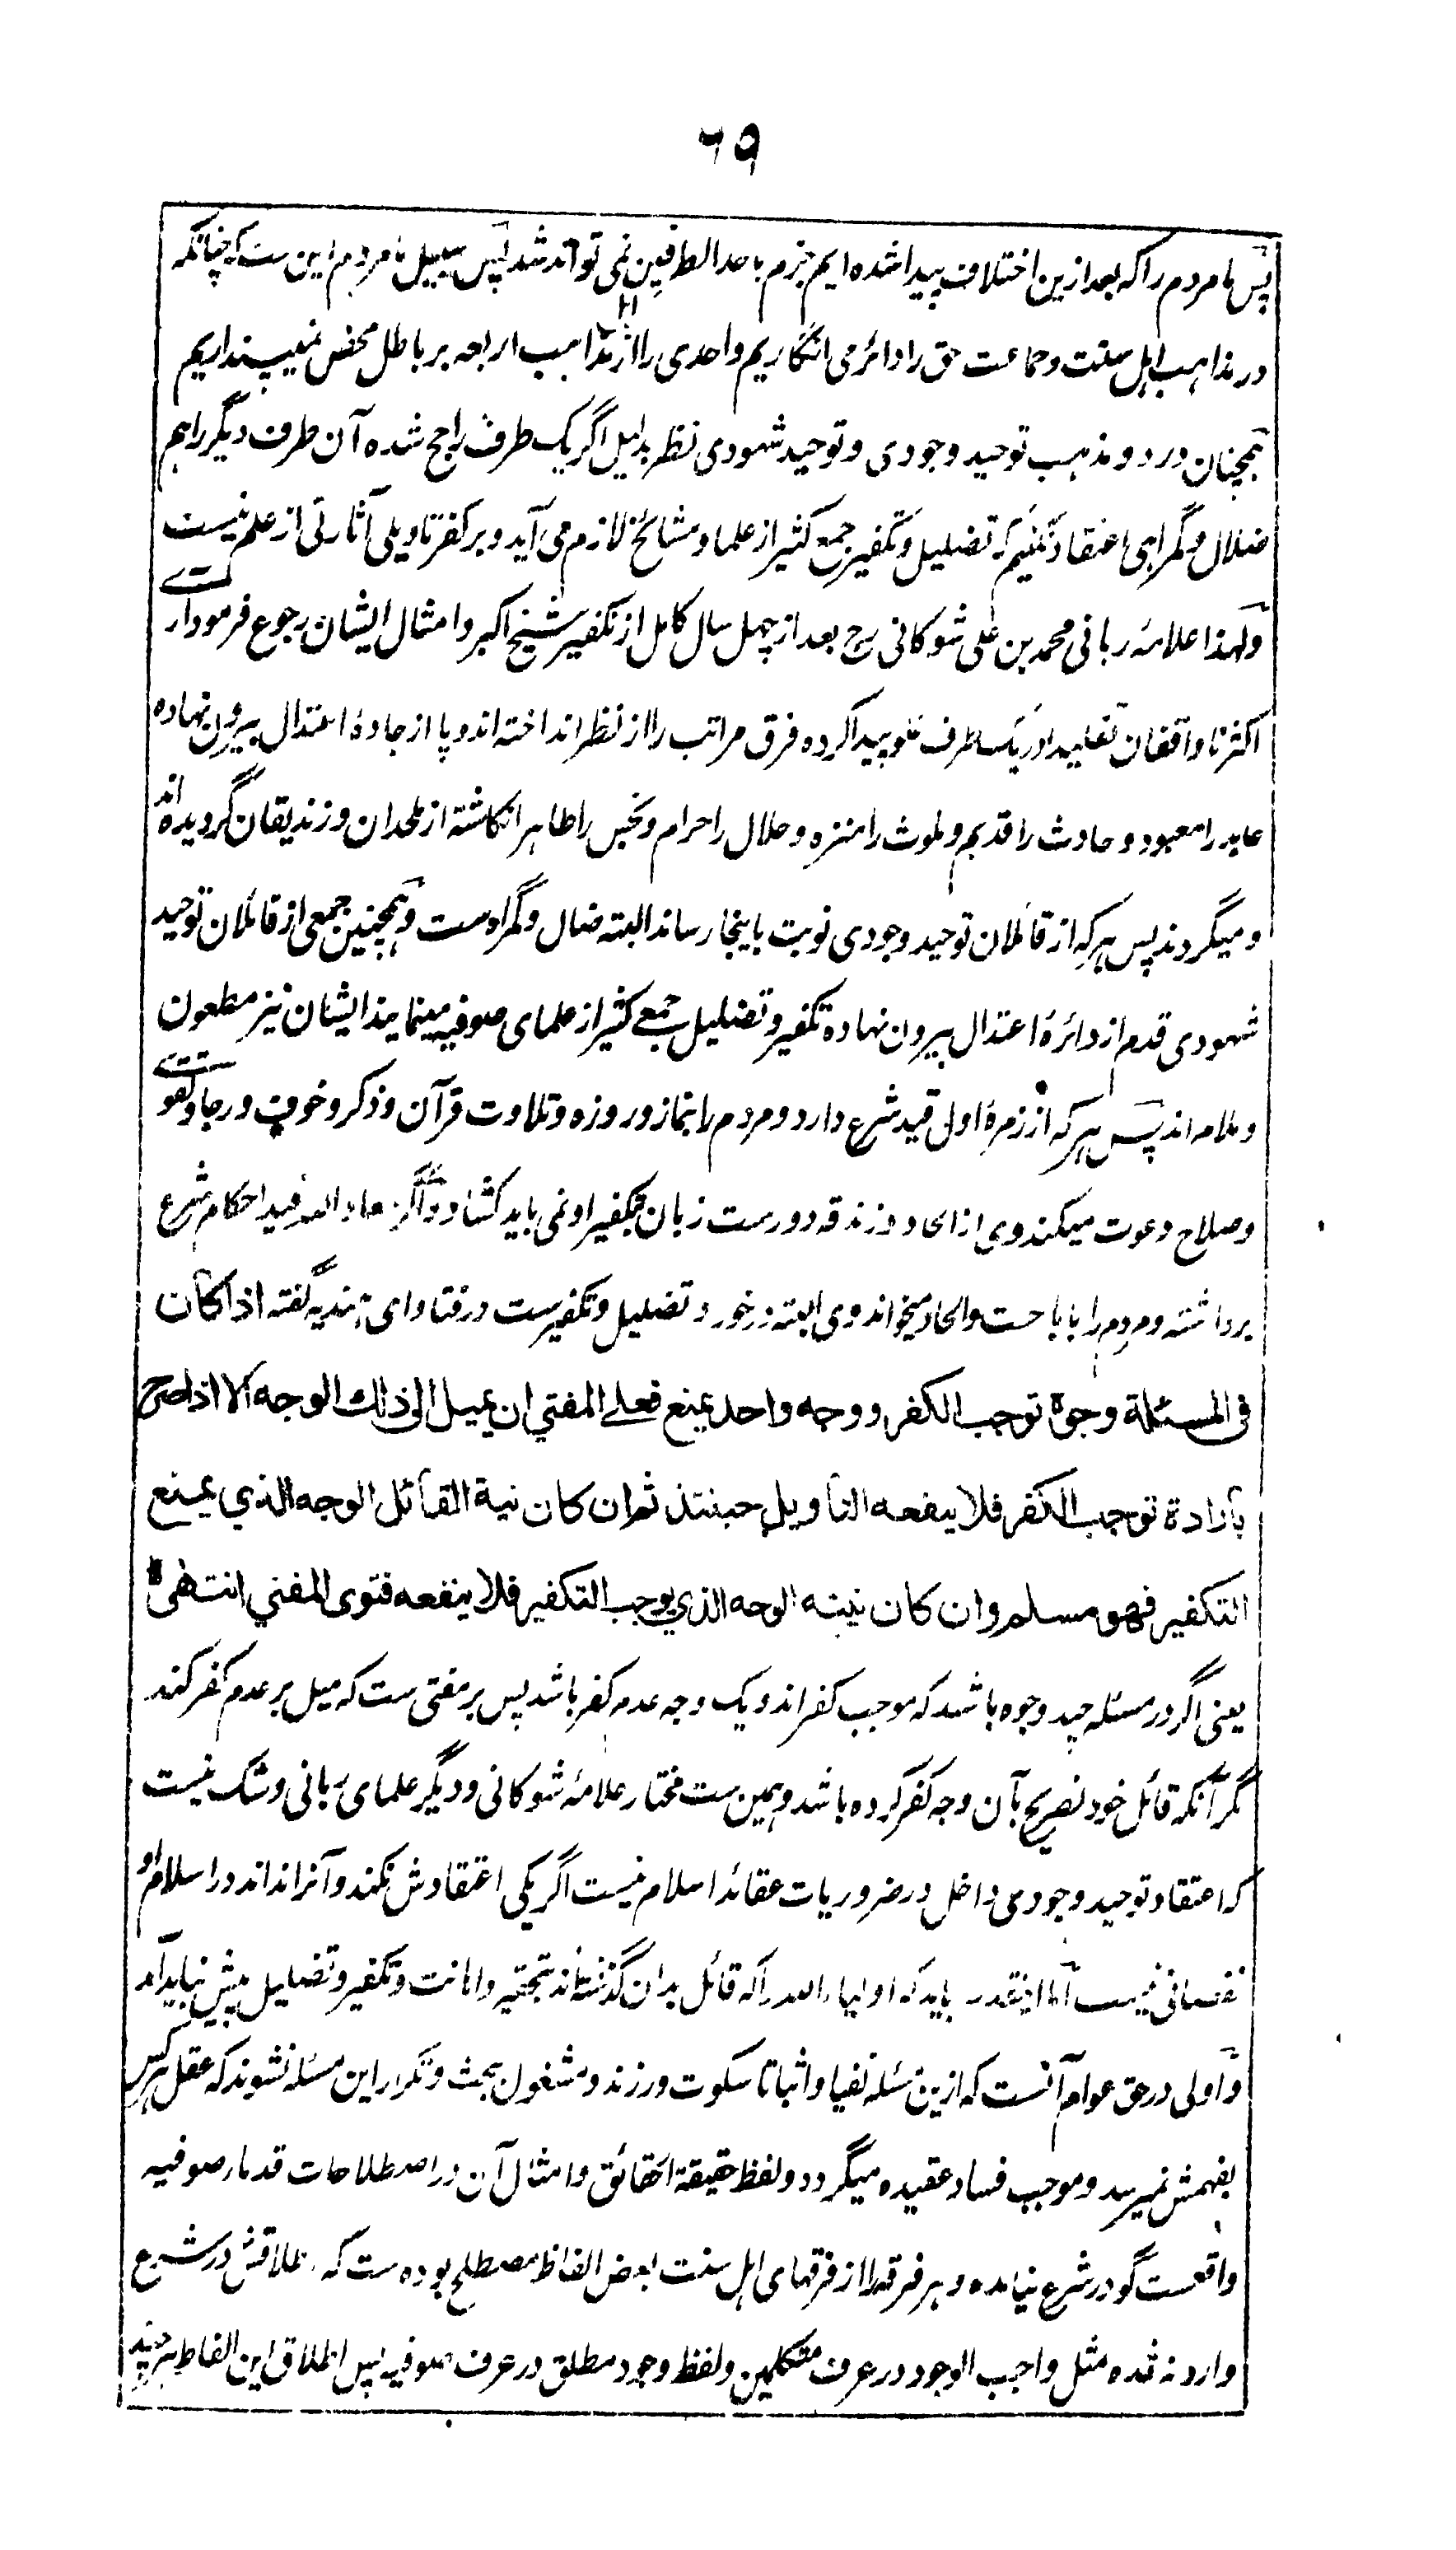 ٦٩
پس ما مردم را که بعد ازین اختلاف پیدا شده ایم جزم باحد الطرفین نمی تواند شد پس سبیل ما مردم این ست که چنانکه
در مذاهب اهل سنت و جماعت حق را دائر می انگاریم واحدی را از مذاهب اربعه بر باطل محض نمی پنداریم
همچنان در دو مذهب توحید وجودی و توحید شهودی نظر بدلیل اگر یک طرف راجح شده آن طرف دیگر را هم
ضلال و گمراهی اعتقاد نکنیم که تضلیل و تکفیر جمع کثیر از علما و مشائخ لازم می آید و بر کفر تاویلی آثارتی از علم نیست
ولهذا علامه ربانی محمد بن علی شوکانی رح بعد از چهل سال کامل از تکفیر شیخ اکبر و امثال ایشان رجوع فرمود آری
اکثر ناواقفان تقلید در یک طرف غلو پیدا کرده فرق مراتب را از نظر انداخته اند و پا از جادهٔ اعتدال بیرون نهاده
عابد را معبود و حادث را قدیم و ملوث را منزه و حلال را حرام و نجس را طاهر انگاشته از ملحدان و زندیقان گردیده اند
و میگردند پس هر که از قائلان توحید وجودی نوبت باینجا رساند البته ضال و گمراه ست و همچنین جمعی از قائلان توحید
شهودی قدم از دائرهٔ اعتدال بیرون نهاده تکفیر و تضلیل جمعے کثیر از علمای صوفیه مینمایند ایشان نیز مطعون
و ملام اند پس هر که از زمرهٔ اول قید شرع دارد و مردم را بنماز و روزه و تلاوت قرآن و ذکر و خوف و رجا و تقوے
و صلاح دعوت میکند و وی از الحاد و زندقه دور ست زبان بتکفیر او نمی باید کشاد و اگر معاذ الله قید احکام شرع
برداشته و مردم را باباحت و الحاد میخواند وی البته در خور تضلیل و تکفیر ست در فتاوای هندیه گفته اذا کان
فی المسئلة وجوه توجب الکفر و وجه واحد یمنع فعلے المفتي ان یمیل الی ذلك الوجه الا اذا صرح
بارادة توجب الکفر فلا ینفعه التأویل حینئذ ثم ان کان نیة القائل الوجه الذي یمنع
التکفیر فهو مسلم وان کان نیته الوجه الذي یوجب التکفیر فلا ینفعه فتوی المفتي انتهی
یعنی اگر در مسئله چند وجوه باشد که موجب کفر اند و یک وجه عدم کفر باشد پس بر مفتی ست که میل بر عدم کفر کند
مگر آنکه قائل خود تصریح بآن وجه کفر کرده باشد و همین ست مختار علامهٔ شوکانی و دیگر علمای ربانی و شک نیست
که اعتقاد توحید وجودی داخل در ضروریات عقائد اسلام نیست اگر یکی اعتقادش نکند و آنرا نداند در اسلام او
نقصانی نیست اما اینقدر باید که اولیاء الله را که قائل بدان گذشته اند بتحقیر و اهانت و تکفیر و تضلیل پیش نباید آمد
و اولی در حق عوام آنست که ازین مسئله نفیا و اثباتا سکوت ورزند و مشغول ببحث و تکرار این مسئله نشوند که عقل هر کس
بفهمش نمیرسد و موجب فساد عقیده میگردد و لفظ حقیقة الحقائق و امثال آن در اصطلاحات قدماء صوفیه
واقعست گو در شرع نیامده و هر فرقه را از فرقهای اهل سنت بعض الفاظ مصطلح بوده ست که اطلاقش در شرع
وارد نه شده مثل واجب الوجود در عرف متکلمین و لفظ وجود مطلق در عرف صوفیه پس اطلاق این الفاظ هر چند